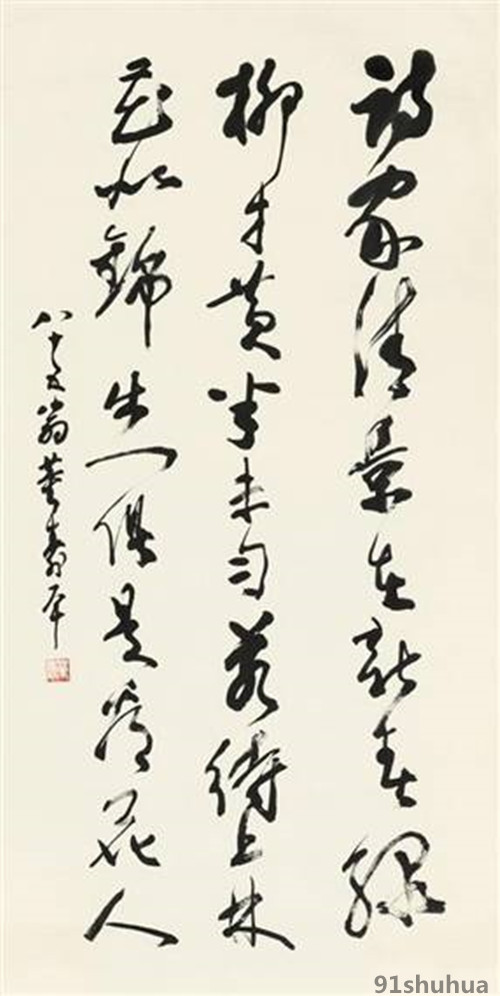 詩家清景在新春綠
柳才黄半未匀若待上林
花似錦出門俱是看花人
八十五翁董壽平
91shuhua